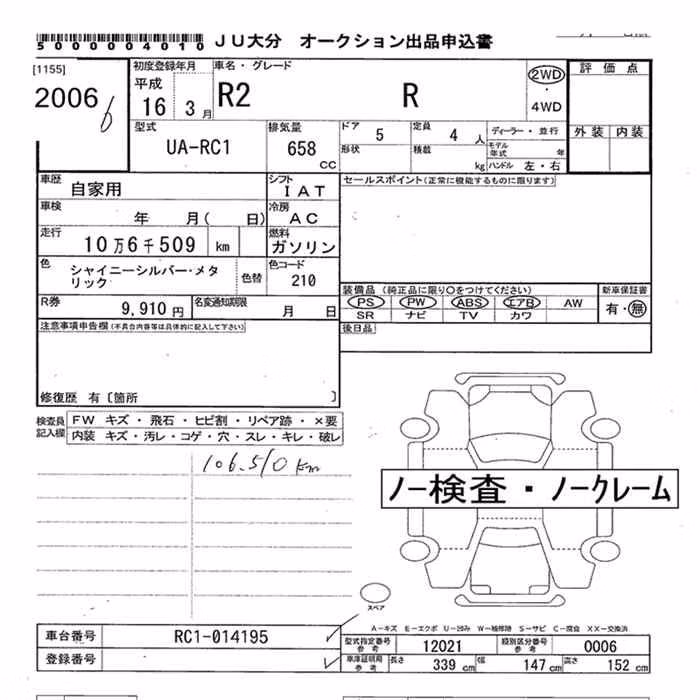 5000004010 JU大分 オークション出品申込書
[1155] 初度登録年月 車名・グレード 評価点
2006 平成 16 3月 R2 R 2WD・4WD
型式 UA-RC1 排気量 658CC ドア 5 定員 4人 ディーラー・並行 外装 内装
形状 積載 kg モデル年式 年
ハンドル 左・右
車歴 自家用 シフト IAT セールスポイント(正常に機能するものに限ります)
車検 年 月( 日) 冷房 AC
走行 10万6千509 km 燃料 ガソリン
色 シャイニーシルバー・メタリック 色替 色コード 210
装備品(純正品に限り○をつけてください) 新車保証書
PS PW ABS エアB AW 有・無
SR ナビ TV カワ
R券 9,910円 名変通知期限 月 日
後日品
注意事項申告欄(不具合内容等は具体的に記入して下さい)
修復歴 有〔箇所 〕
検査員記入欄 FW キズ・飛石・ヒビ割・リペア跡・×要
内装 キズ・汚レ・コゲ・穴・スレ・キレ・破レ
106.510km
ノー検査・ノークレーム
スペア
A-キズ E-エクボ U-凹み W-補修跡 S-サビ C-腐食 XX-交換済
車台番号 RC1-014195
登録番号
型式指定番号 参考 12021 類別区分番号 参考 0006
車庫証明局 参考 長さ 339cm 幅 147cm 高さ 152cm